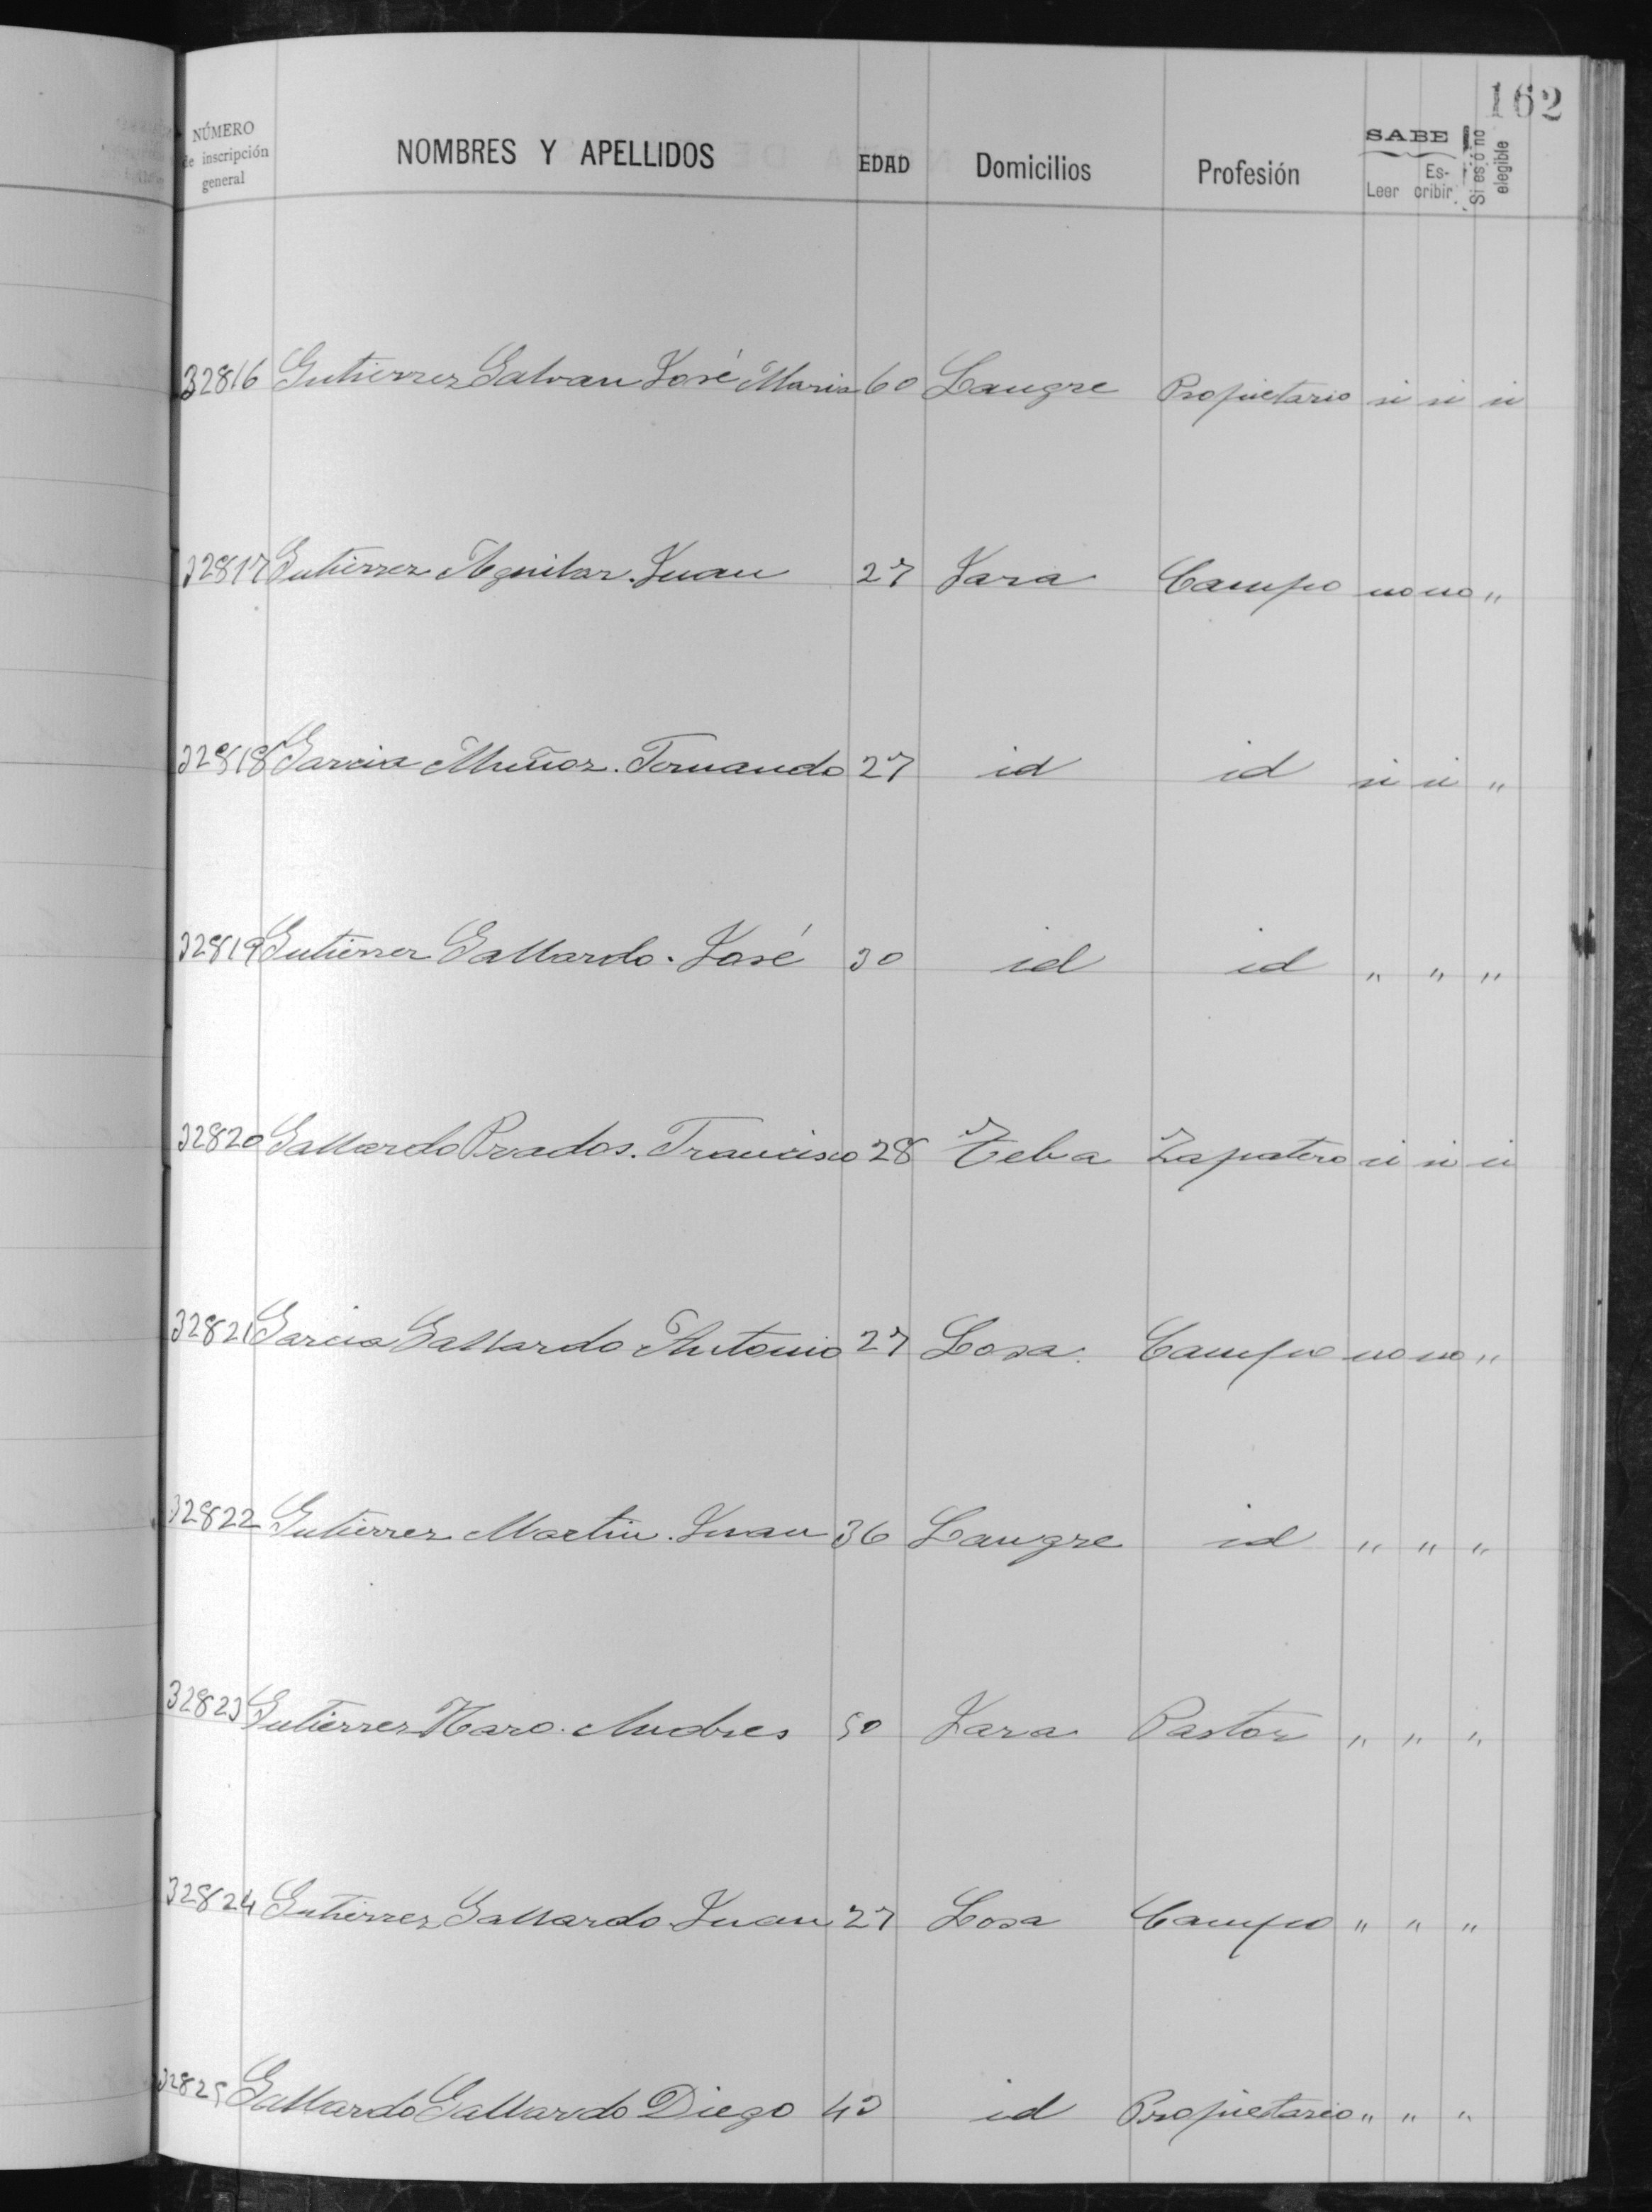 162
NÚMERO de inscripción general NOMBRES Y APELLIDOS EDAD Domicilios Profesión SABE Leer Es-cribir Si es ó no elegible
32816 Gutierrez Galvan José Maria 60 Langre Propietario si si si
32817 Gutierrez Aguilar. Juan 27 Jara Campo no no "
32818 Garcia Muñoz. Fernando 27 id id si si "
32819 Gutierrez Gallardo. José 30 id id " " "
32820 Gallardo Prados. Francisco 28 Teba Zapatero si si si
32821 Garcia Gallardo Antonio 27 Losa. Campo no no "
32822 Gutierrez Martin. Juan 36 Langre id " " "
32823 Gutierrez Haro. Andres 50 Jara Pastor " " "
32824 Gutierrez Gallardo Juan 27 Losa Campo " " "
32825 Gallardo Gallardo Diego 43 id Propietario " " "